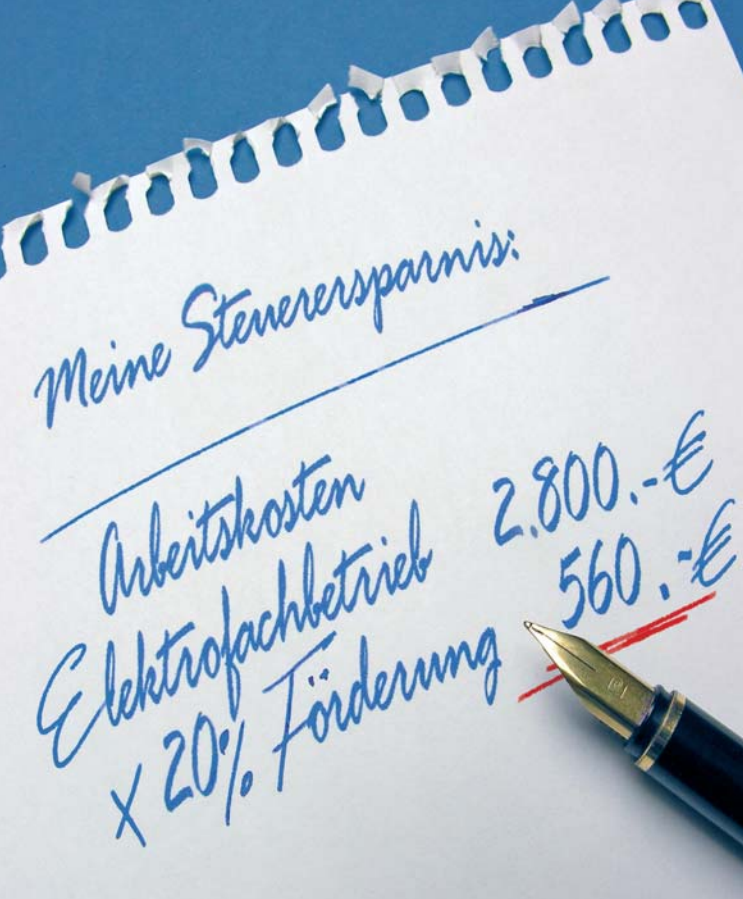 Meine Steuerersparnis:
Arbeitskosten
Elektrofachbetrieb 2.800.-€
x 20% Förderung 560.-€